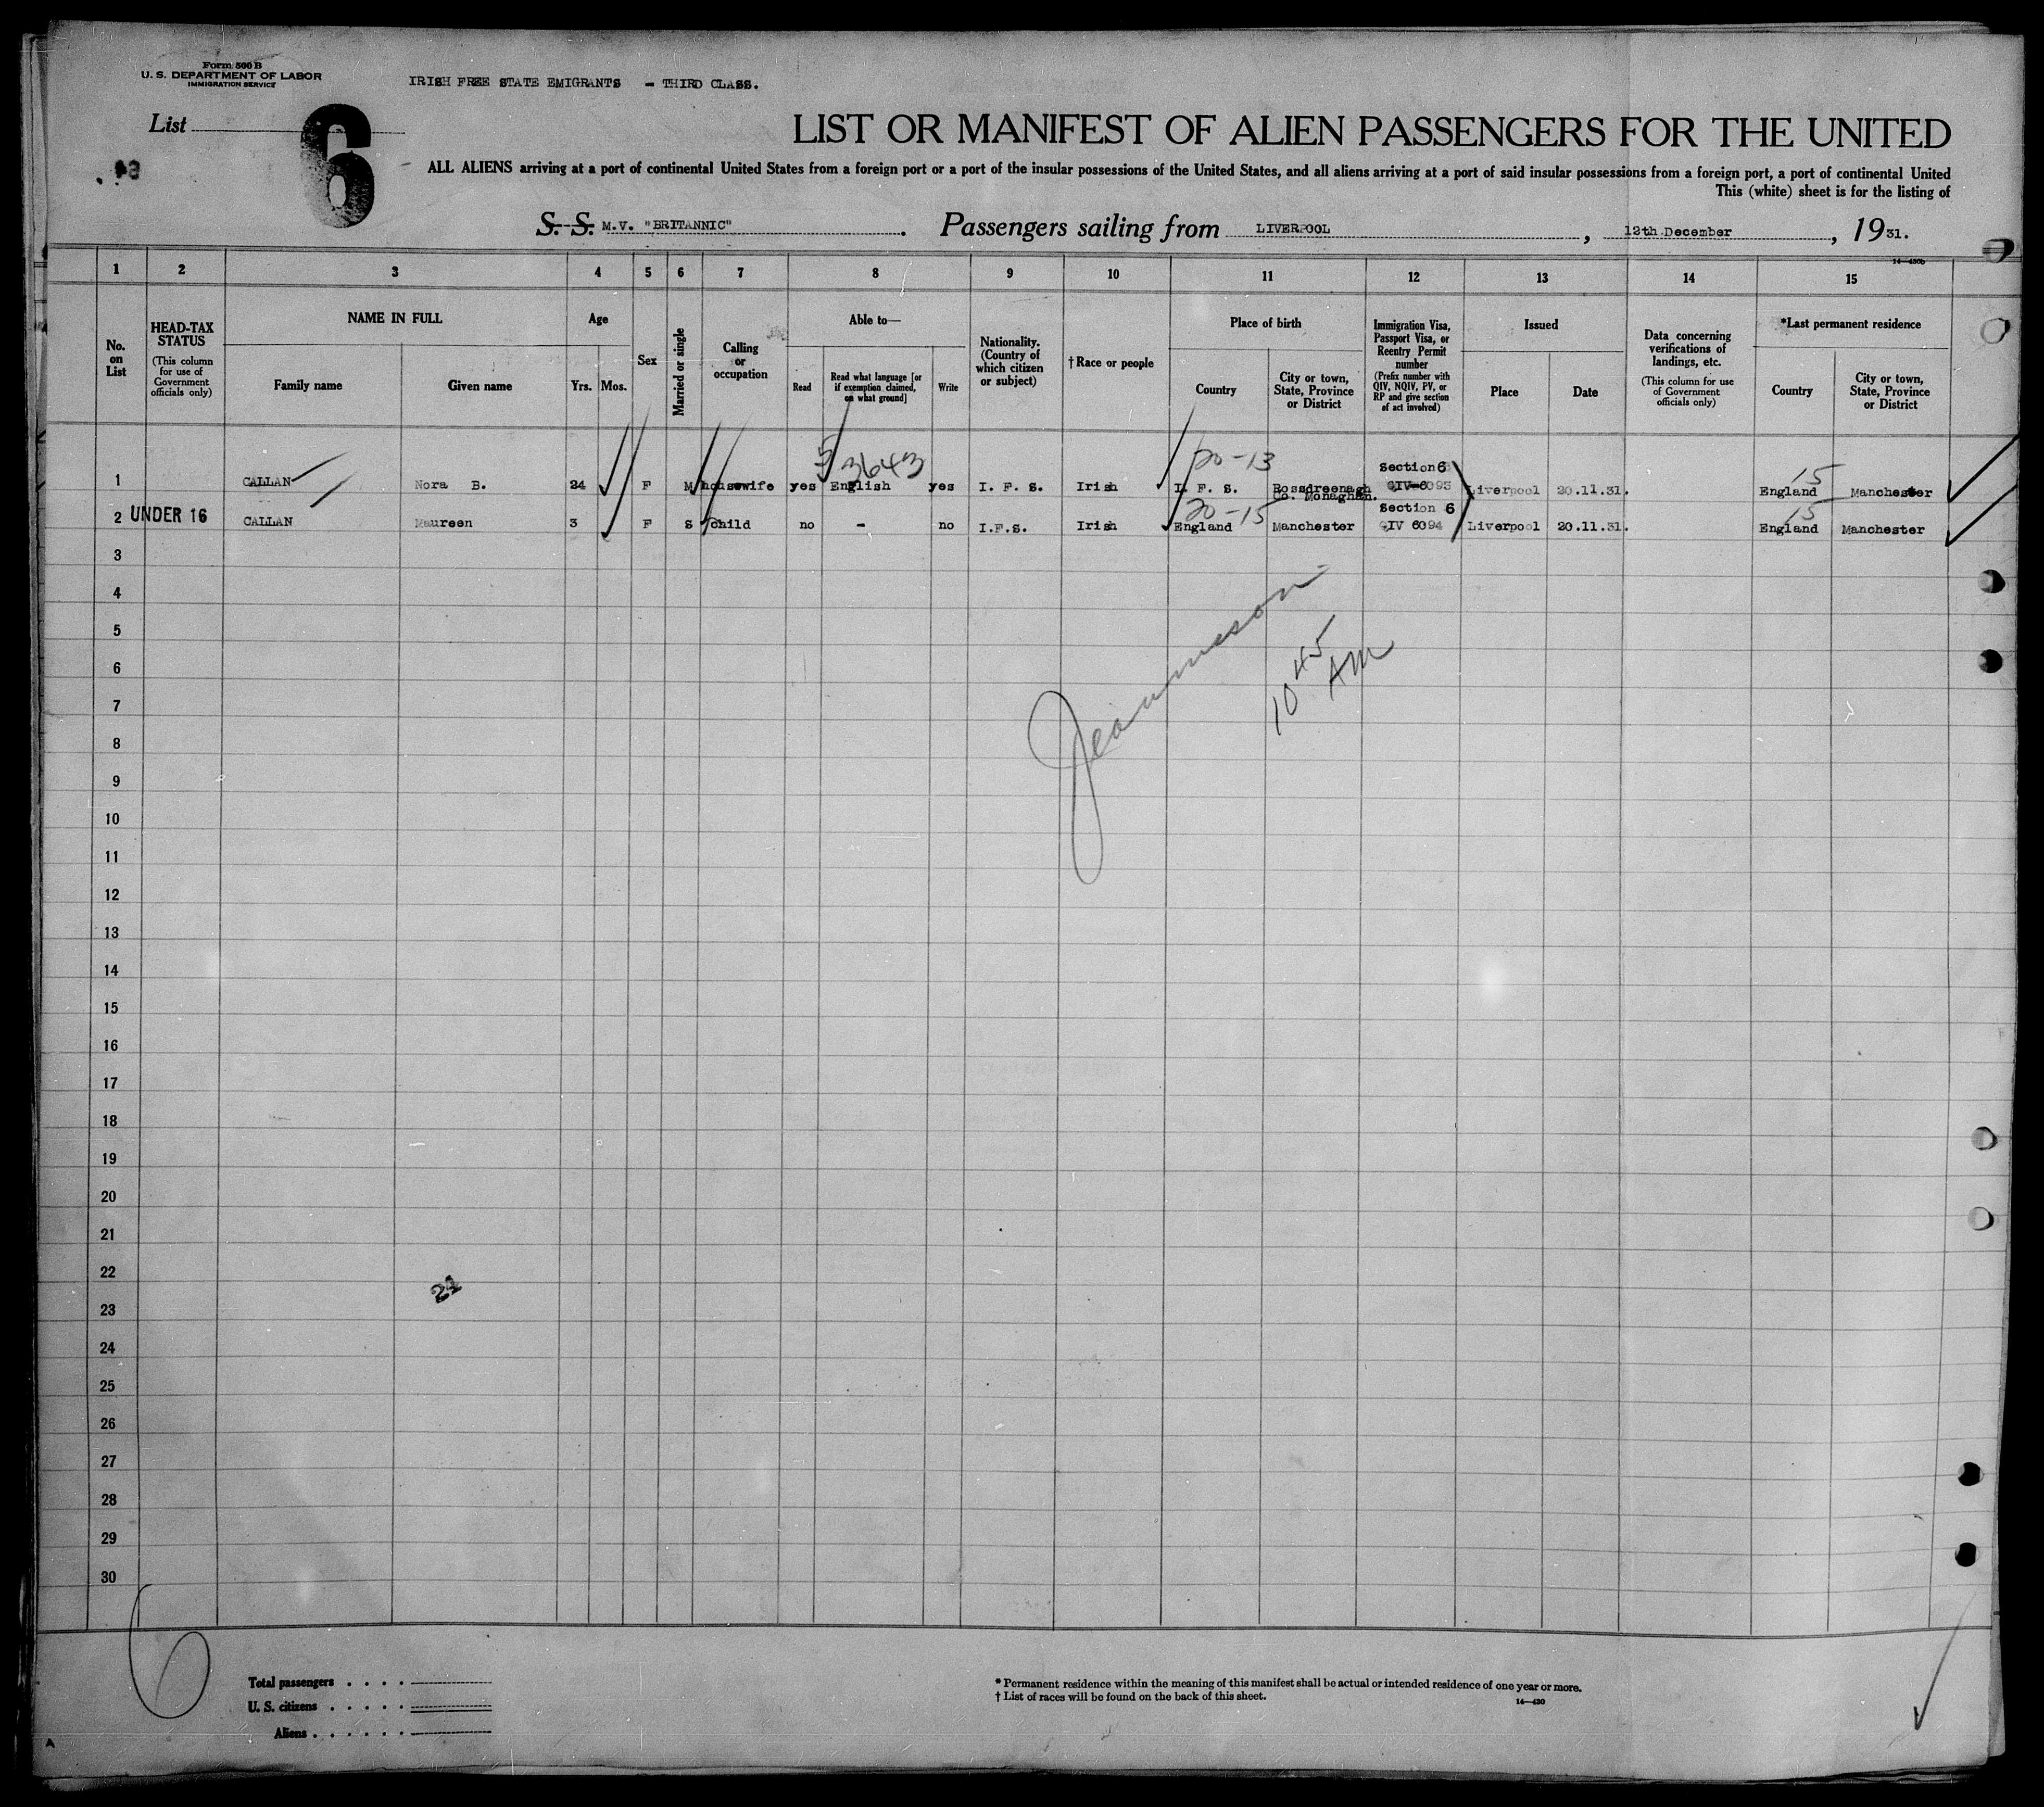 Form 500 B
U. S. DEPARTMENT OF LABOR
IMMIGRATION SERVICE
IRISH FREE STATE EMIGRANTS - THIRD CLASS.
List 6
LIST OR MANIFEST OF ALIEN PASSENGERS FOR THE UNITED
ALL ALIENS arriving at a port of continental United States from a foreign port or a port of the insular possessions of the United States, and all aliens arriving at a port of said insular possessions from a foreign port, a port of continental United
This (white) sheet is for the listing of
S. S. M.V. "BRITANNIC". Passengers sailing from LIVERPOOL, 12th December, 1931.
14—430b
1 2 3 4 5 6 7 8 9 10 11 12 13 14 15
No. on List
HEAD-TAX STATUS
(This column for use of Government officials only)
NAME IN FULL
Family name Given name
Age
Yrs. Mos.
Sex
Married or single
Calling or occupation
Able to—
Read
Read what language [or if exemption claimed, on what ground]
Write
Nationality. (Country of which citizen or subject)
† Race or people
Place of birth
Country
City or town, State, Province or District
Immigration Visa, Passport Visa, or Reentry Permit number
(Prefix number with QIV, NQIV, PV, or RP and give section of act involved)
Issued
Place Date
Data concerning verifications of landings, etc.
(This column for use of Government officials only)
*Last permanent residence
Country
City or town, State, Province or District
53643 20-13 Section 6 15
1 CALLAN Nora B. 24 F M housewife yes English yes I. F. S. Irish I. F. S. Rossdreenagh Co. Monaghan. QIV-6093 Liverpool 20.11.31. England Manchester
20-15 Section 6 15
2 UNDER 16 CALLAN Maureen 3 F S child no - no I.F.S. Irish England Manchester QIV 6094 Liverpool 20.11.31. England Manchester
3
4
5
6
7
8
9
10
11
12
13
14
15
16
17
18
19
20
21
22
23
24
25
26
27
28
29
30
10 45 AM
Total passengers
U. S. citizens
Aliens
* Permanent residence within the meaning of this manifest shall be actual or intended residence of one year or more.
† List of races will be found on the back of this sheet.
14—430
A